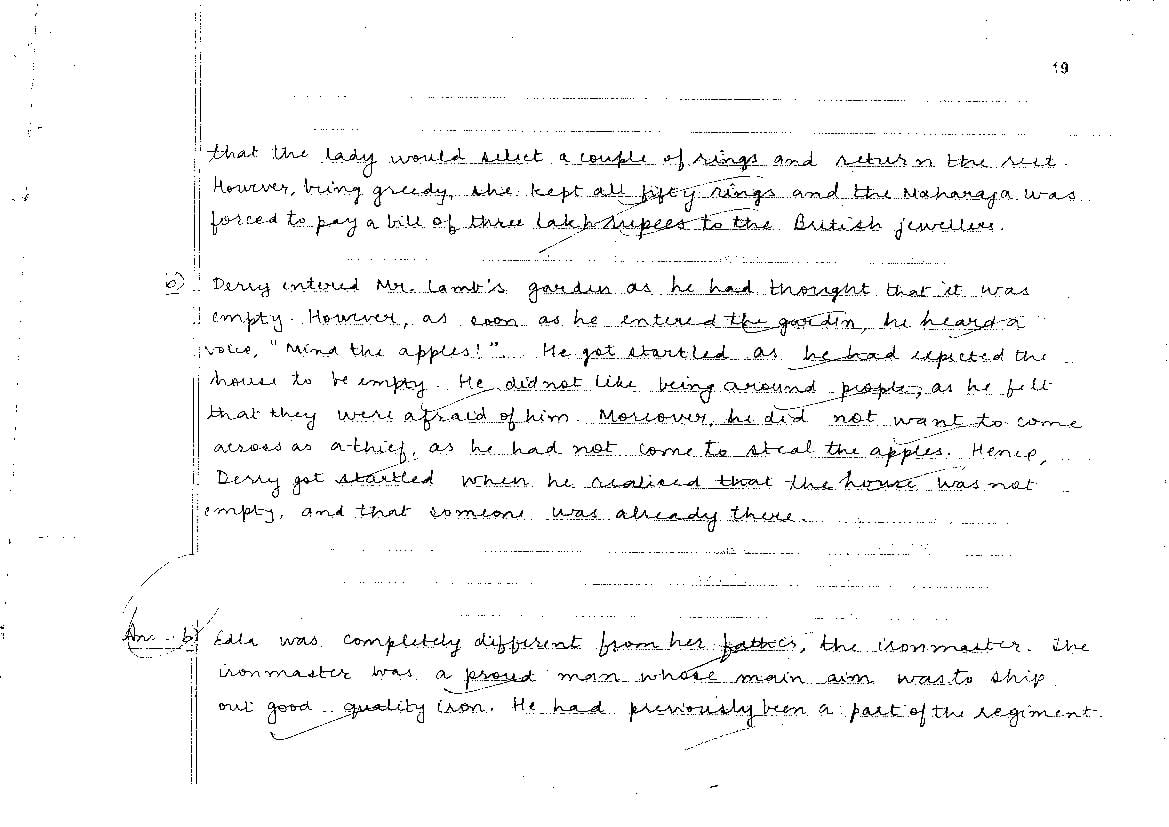 19
that the lady would select a couple of rings and return the rest.
However, being greedy, she kept all fifty rings and the Maharaja was
forced to pay a bill of three lakh rupees to the British jewellers.
Derry entered Mr. Lamb's garden as he had thought that it was
empty. However, as soon as he entered the garden, he heard a
voice, "Mind the apples!". He got startled as he had expected the
house to be empty. He did not like being around people, as he felt
that they were afraid of him. Moreover, he did not want to come
across as a thief, as he had not come to steal the apples. Hence,
Derry got startled when he realised that the house was not
empty, and that someone was already there.
Ans - b) Edla was completely different from her father, the ironmaster. The
ironmaster was a proud man whose main aim was to ship
out good quality iron. He had previously been a part of the regiment